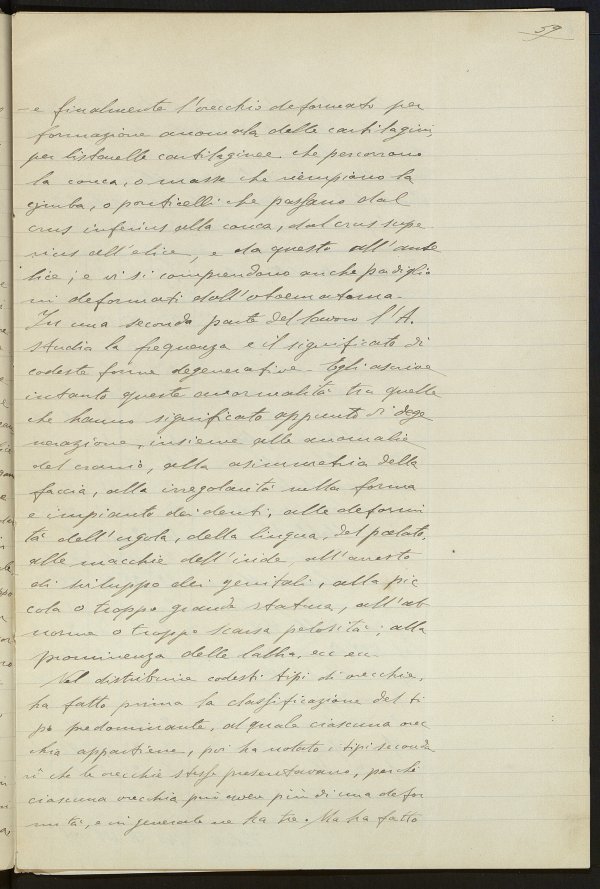 59
- e finalmente l'orecchio deformato per
formazione anomala delle cartilagini,
per listarelle cartilaginee che percorrono
la conca, o masse che riempiono la
cymba, o ponticelli che passano dal
crus inferius alla conca, dal crus supe
rius all'elice, e da questo all'ante
lice; e vi si comprendono anche padiglio
ni deformati dall'otoematoma.
In una seconda parte del lavoro l'A.
studia la frequenza e il significato di
codeste forme degenerative - Egli ascrive
intanto queste anormalità tra quelle
che hanno significato appunto di dege
nerazione, insieme alle anomalie
del cranio, alla asimmetria della
faccia, alla irregolarità nella forma
e impianto dei denti, alle deformi
tà dell'ugola, della lingua, del palato,
alle macchie dell'iride, all'arresto
di sviluppo dei genitali, alla pic
cola o troppo grande statura, all'ab
norme o troppo scarsa pelosità; alla
prominenza delle labbra, ecc ecc.
Nel distribuire codesti tipi di orecchie,
ha fatto prima la classificazione del ti
po predominante, al quale ciascuna orec
chia appartiene, poi ha notato i tipi seconda
rî che le orecchie stesse presentavano, perchè
ciascuna orecchia può avere più di una defor
mità, e in generale ne ha tre. Ma ha fatto